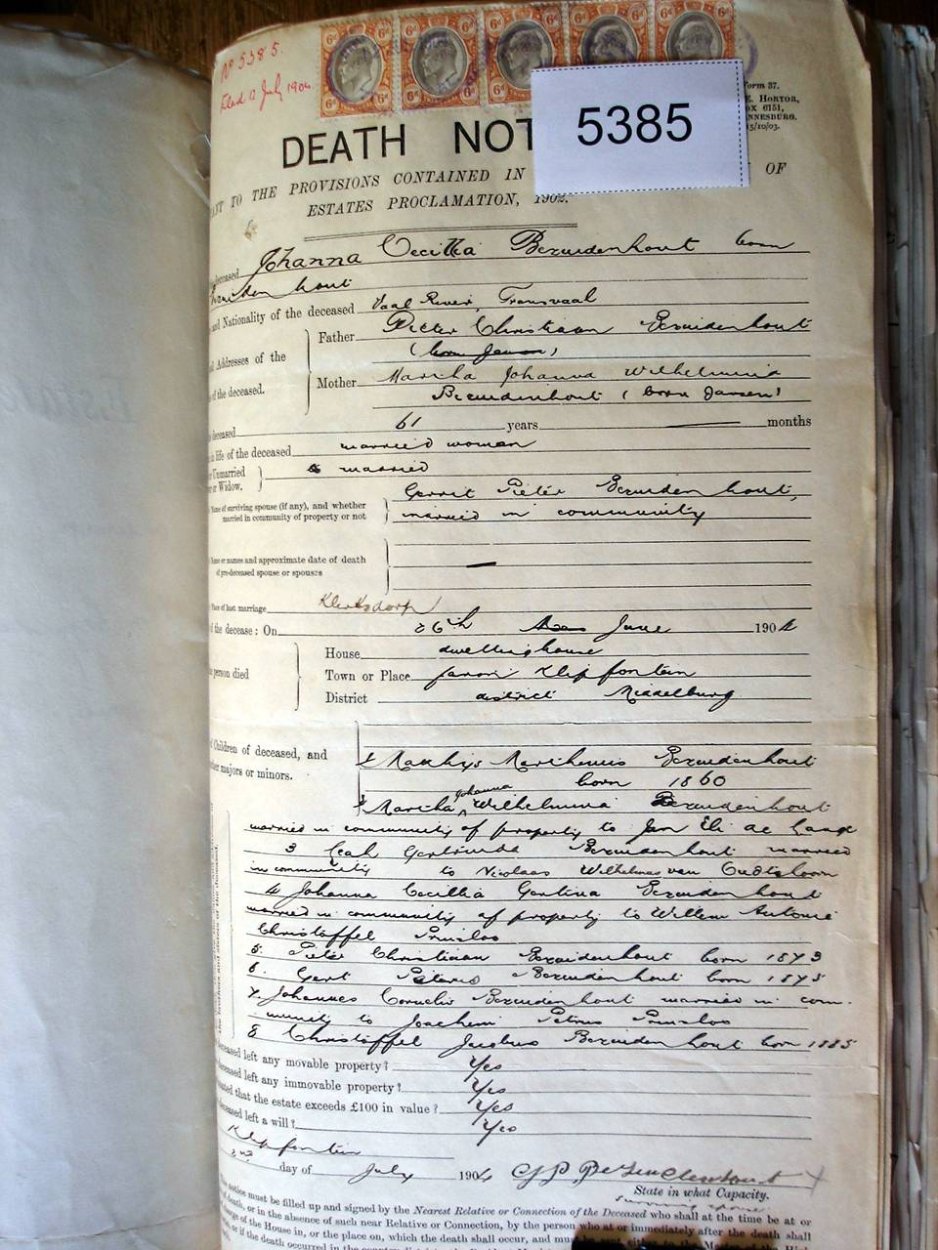 6d 6d 6d 6d 6d
No 5385.
Filed July 1904
Form 37.
E. HORTOR,
BOX 6151,
JOHANNESBURG.
5385
DEATH NOT
ANT TO THE PROVISIONS CONTAINED IN OF
ESTATES PROCLAMATION, 1902.
deceased Johanna Cecilia Bezuidenhout born
Bezuidenhout
and Nationality of the deceased Vaal River, Transvaal
Addresses of the
of the deceased.
Father Pieter Christiaan Bezuidenhout
(born Jansen)
Mother Martha Johanna Wilhelmina
Bezuidenhout (born Jansen)
deceased 61 years — months
in life of the deceased married woman
Unmarried
or Widow. married
Name of surviving spouse (if any), and whether
married in community of property or not
Gerrit Pieter Bezuidenhout,
married in community
Name or names and approximate date of death
of pre-deceased spouse or spouses
—
Place of last marriage Klerksdorp
of the decease: On 26th June 1904
person died
House dwelling house
Town or Place farm Klipfontein
District district Middelburg
Children of deceased, and
majors or minors.
1 Mathys Marthinus Bezuidenhout
born 1860
2 Martha Johanna Wilhelmina Bezuidenhout
married in community of property to Jan Eli de Lange
3 Leah Gertruida Bezuidenhout married
in community to Nicolaas Wilhelmus van Oudtshoorn
4 Johanna Cecilia Bezuidenhout
married in community of property to Willem Antonie
Christoffel Prinsloo
5. Pieter Christiaan Bezuidenhout born 1873
6. Gert Petrus Bezuidenhout born 1875
7. Johannes Cornelis Bezuidenhout married in com-
munity to Joachem Petrus Prinsloo
8 Christoffel Jacobus Bezuidenhout born 1885
deceased left any movable property? Yes
deceased left any immovable property? Yes
estimated that the estate exceeds £100 in value? Yes
deceased left a will? Yes
Klipfontein
2nd day of July 1904 G P Bezuidenhout
State in what Capacity.
surviving spouse
This notice must be filled up and signed by the Nearest Relative or Connection of the Deceased who shall at the time be at or
of death, or in the absence of such near Relative or Connection, by the person who at or immediately after the death shall
charge of the House in, or the place on, which the death shall occur, and must